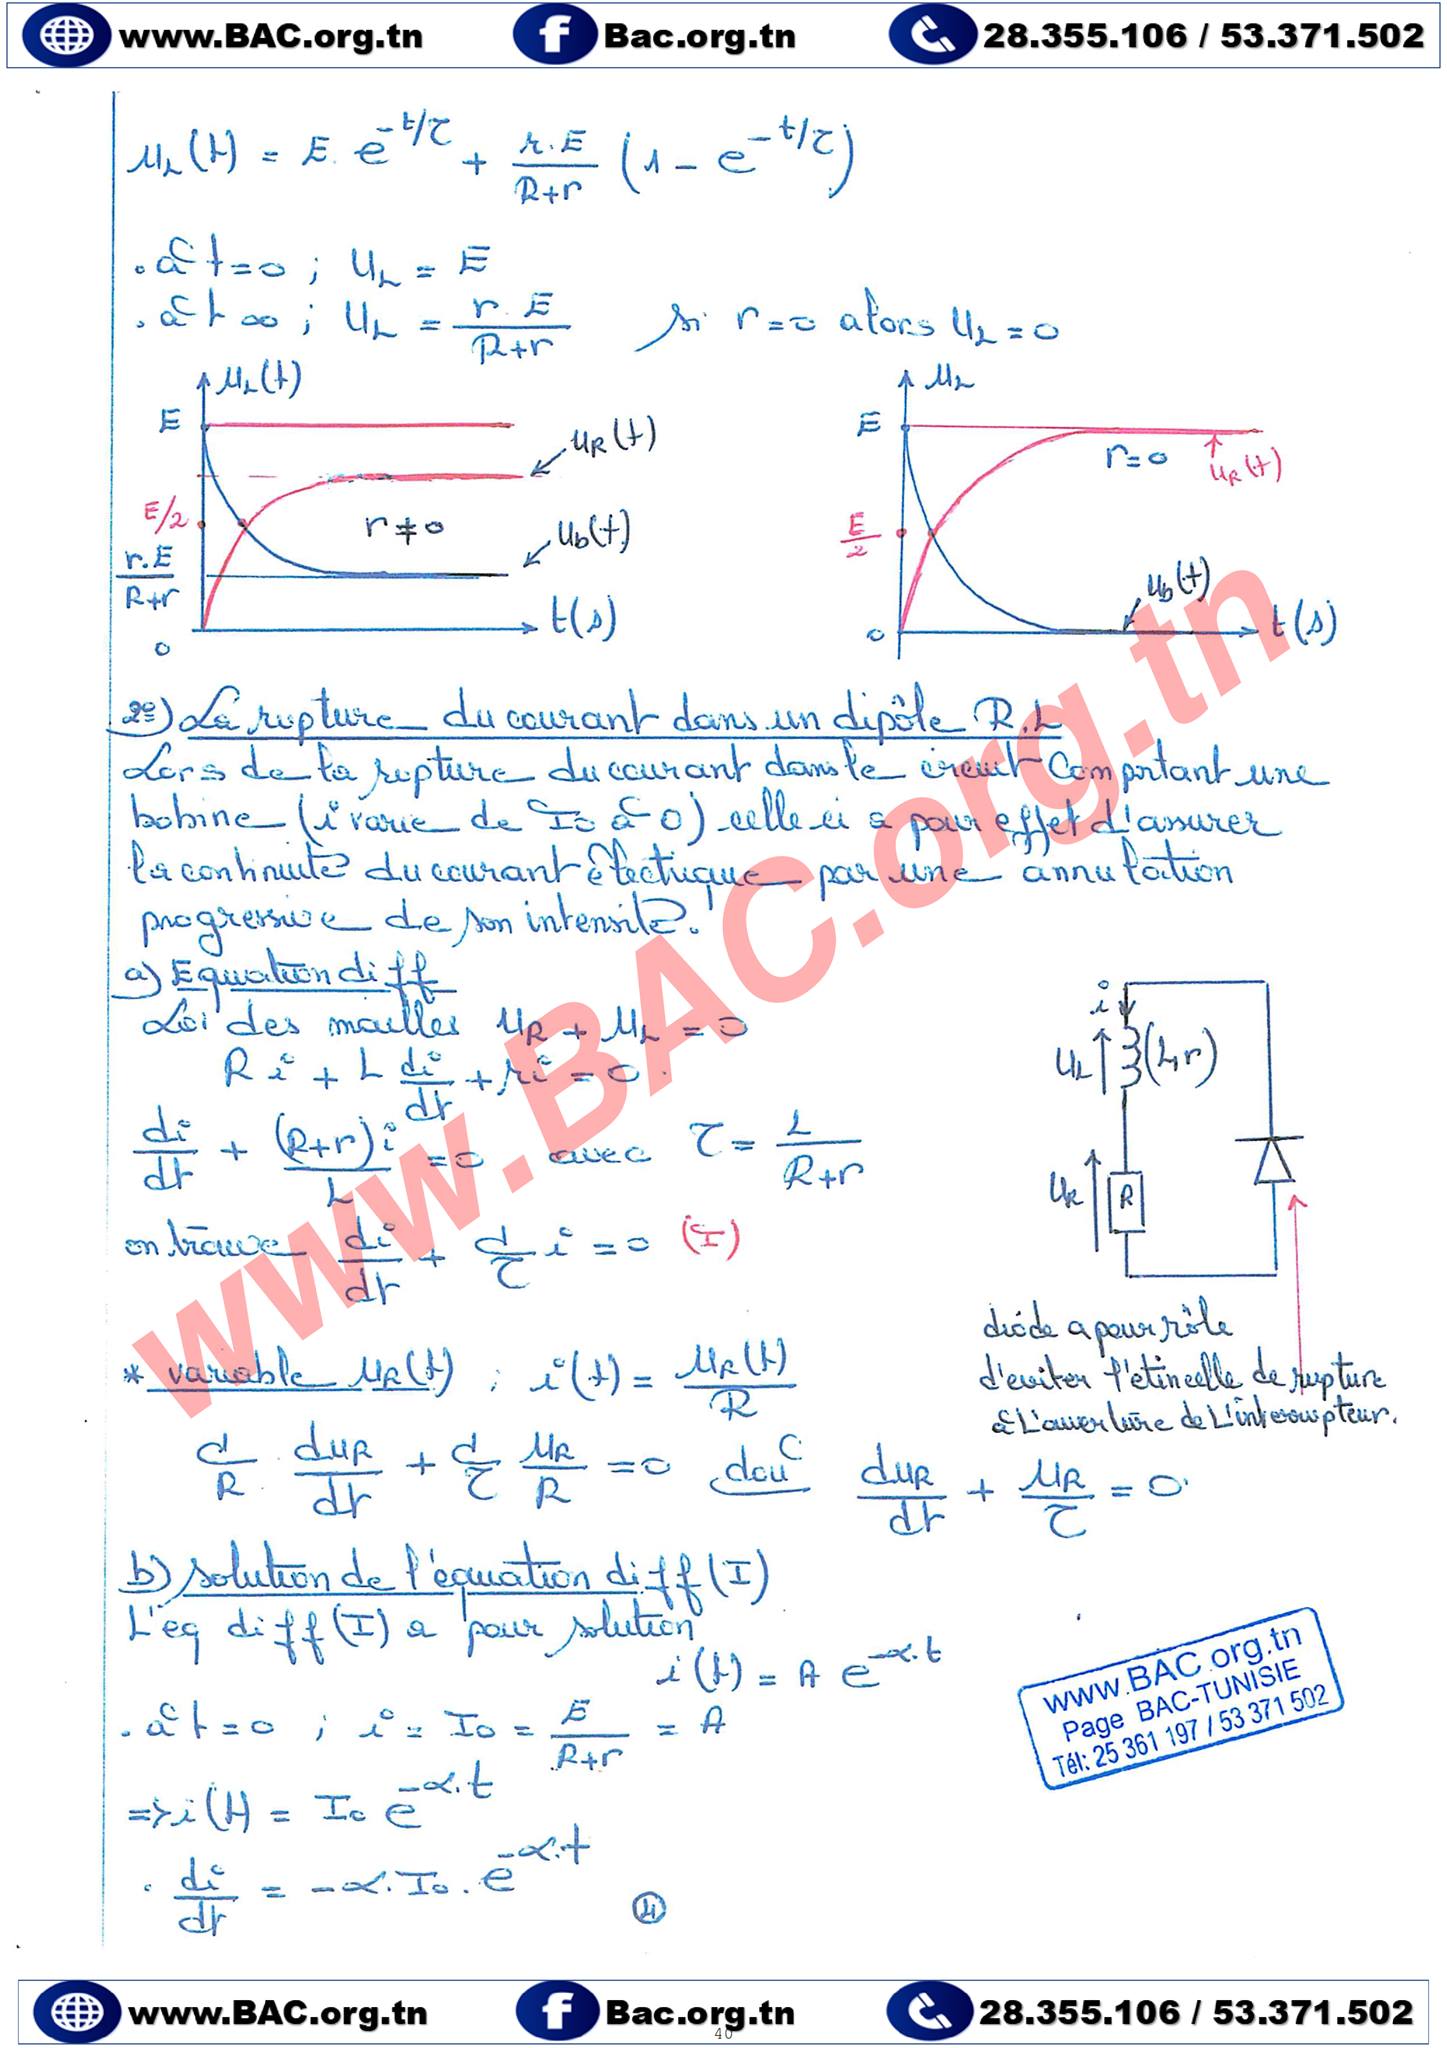 www.BAC.org.tn Bac.org.tn 28.355.106 / 53.371.502
u_L(t) = E. e^{-t/τ} + r.E/(R+r) (1 - e^{-t/τ})
. à t=0 ; u_L = E
. à t ∞ ; u_L = r.E/(R+r) si r=0 alors u_L = 0
u_L(t)
E
u_R(t)
E/2
r ≠ 0
u_b(t)
r.E/(R+r)
t(s)
0
u_L
E
r=0
u_R(t)
E/2
u_b(t)
0
t(s)
2°) La rupture du courant dans un dipôle R.L
Lors de la rupture du courant dans le circuit comportant une
bobine (i varie de I₀ à 0) celle ci a pour effet d'assurer
la continuité du courant électrique par une annulation
progressive de son intensité.
a) Equation diff
Loi des mailles u_R + u_L = 0
R i + L di/dt + ri = 0.
di/dt + (R+r)i/L = 0 avec τ = L/(R+r)
on trouve di/dt + 1/τ i = 0 (I)
i
u_L
(L,r)
u_R
R
diode a pour rôle
d'eviter l'étincelle de rupture
à L'ouverture de L'interrupteur.
* variable u_R(t) ; i(t) = u_R(t)/R
1/R . du_R/dt + 1/τ u_R/R = 0 dou^c du_R/dt + u_R/τ = 0
b) solution de l'équation diff (I)
L'eq diff (I) a pour solution
i(t) = A e^{-α.t}
. à t=0 ; i = I₀ = E/(R+r) = A
=> i(t) = I₀ e^{-α.t}
. di/dt = -α.I₀.e^{-α.t}
4
www.BAC.org.tn
Page BAC-TUNISIE
Tél: 25 361 197 / 53 371 502
www.BAC.org.tn
www.BAC.org.tn Bac.org.tn 28.355.106 / 53.371.502
40